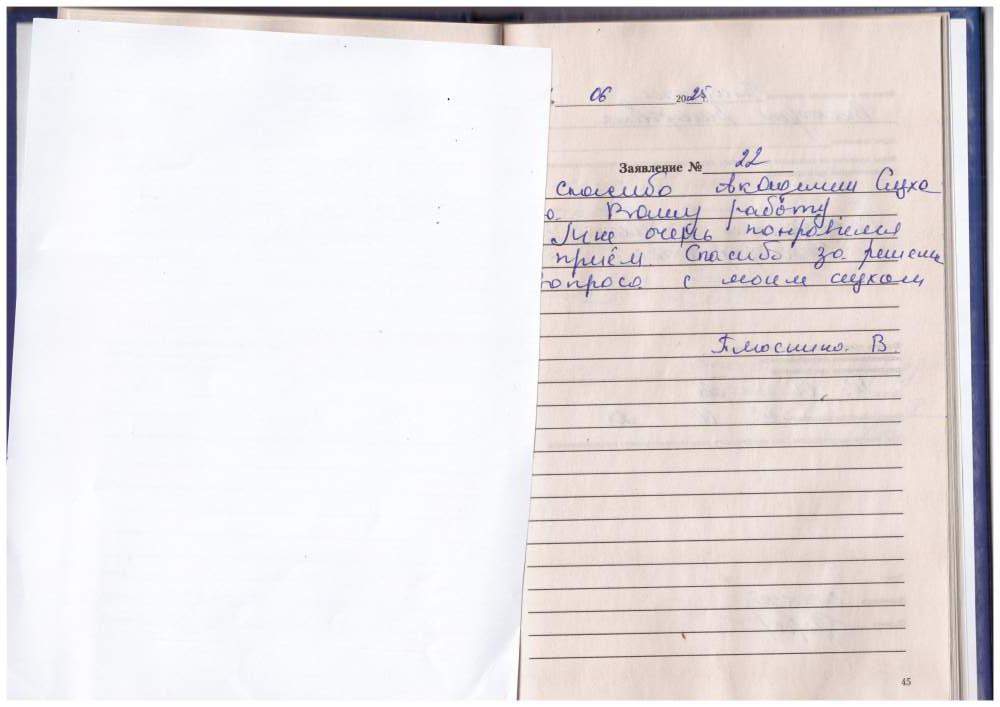 06 2025 г.
Заявление № 22
спасибо Академии Слуха
Вашу работу
Мне очень понравился
приём Спасибо за решение
вопроса с моим слухом
Плюснина В
45